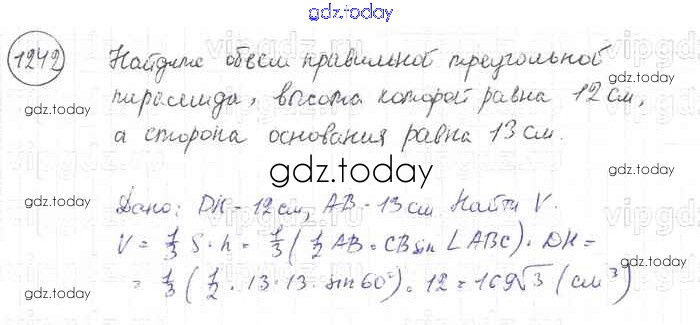 gdz.today
1242 Найдите объем правильной треугольной
пирамиды, высота которой равна 12 см,
gdz.today
а сторона основания равна 13 см.
gdz.today
gdz.today
gdz.today
Дано: DH - 12 см, AB - 13 см Найти V.
V = 1/3 S · h = 1/3 ( 1/2 AB · CB sin ∠ABC) · DH =
= 1/3 ( 1/2 · 13 · 13 · sin 60°) · 12 = 169√3 (см³)
gdz.today
gdz.today
gdz.today